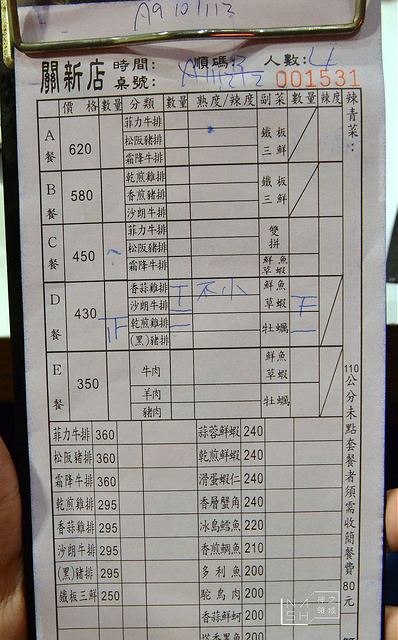 A9101112
關新店 時間: 順碼: 人數: 4
桌號: 001531
價格 數量 分類 數量 熟度/辣度 副菜 數量 辣度 辣青菜:
A餐 620 菲力牛排 松阪豬排 霜降牛排 鐵板三鮮
B餐 580 乾煎雞排 香煎豬排 沙朗牛排 鐵板三鮮
C餐 450 菲力牛排 松阪豬排 霜降牛排 雙拼 鮮魚 草蝦
D餐 430 正 香蒜雞排 沙朗牛排 乾煎雞排 (黑)豬排 不小 鮮魚 草蝦 牡蠣
E餐 350 牛肉 羊肉 豬肉 鮮魚 草蝦 牡蠣
110公分未點套餐者須需收簡餐費80元
菲力牛排 360 蒜蓉鮮蝦 240
松阪豬排 360 乾煎鮮蝦 240
霜降牛排 360 滑蛋蝦仁 240
乾煎雞排 295 香層蟹角 240
香蒜雞排 295 冰島鱈魚 220
沙朗牛排 295 香煎鯛魚 210
(黑)豬排 295 多利魚 200
鐵板三鮮 250 鴕鳥肉 200
香蒜鮮蚵 200
200
神之領域